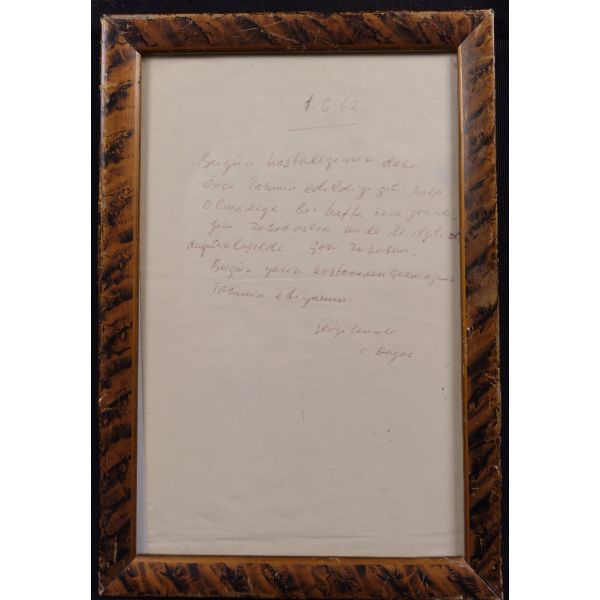 1.6.62.
Bugün hastalığımın daha
önce tahmin edildiği gibi kalp
olmadığı, bir hafta önce geçirdi-
ğim mide ile ilgili ol
duğu anlaşıldı. Çok
Bugün yarın hastaneden çıkacağımı
tahmin ediyorum.